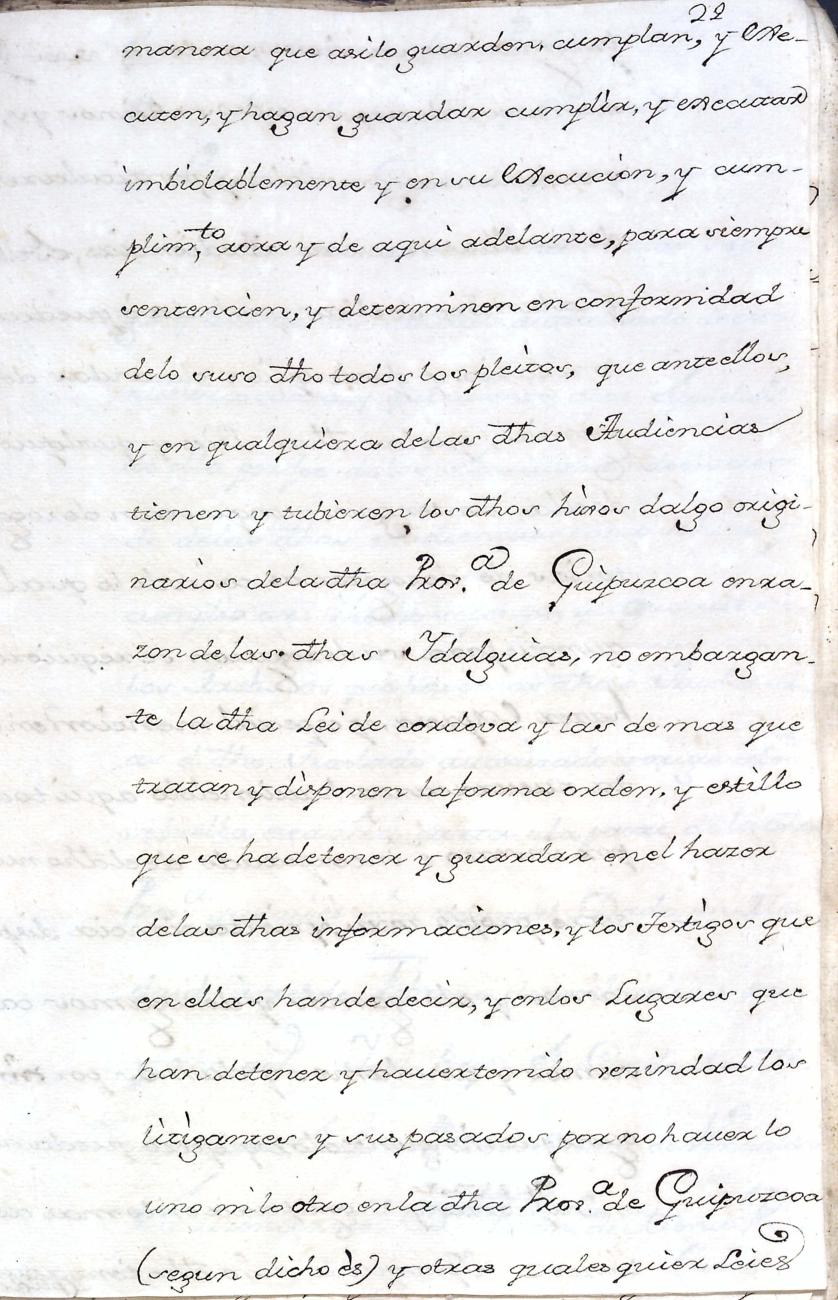 22
manera que asilo guarden, cumplan, y exe-
cuten, y hagan guardar cumplir, y executar
imbiolablemente y en su execucion, y cum-
plim.to aora y de aqui adelante, para siempre
sentencien, y determinen en conformidad
delo suso dho todos los pleitos, que ante ellos,
y en qualquiera de las dhas Audiencias
tienen y tubieren los dhos hixos dalgo origi-
narios de la dha Prov.a de Guipuzcoa en ra-
zon de las dhas Ydalguias, no embargan-
te la dha Lei de cordova y las de mas que
tratan y disponen la forma orden, y estillo
que se ha de tener y guardar en el hazer
de las dhas informaciones, y los Testigos que
en ellas han de decir, y en los Lugares que
han de tener y hauer tenido vezindad los
litigantes y sus pasados por no hauer lo
uno ni lo otro en la dha Prov.a de Guipuzcoa
(segun dicho es) y otras quales quier Leies